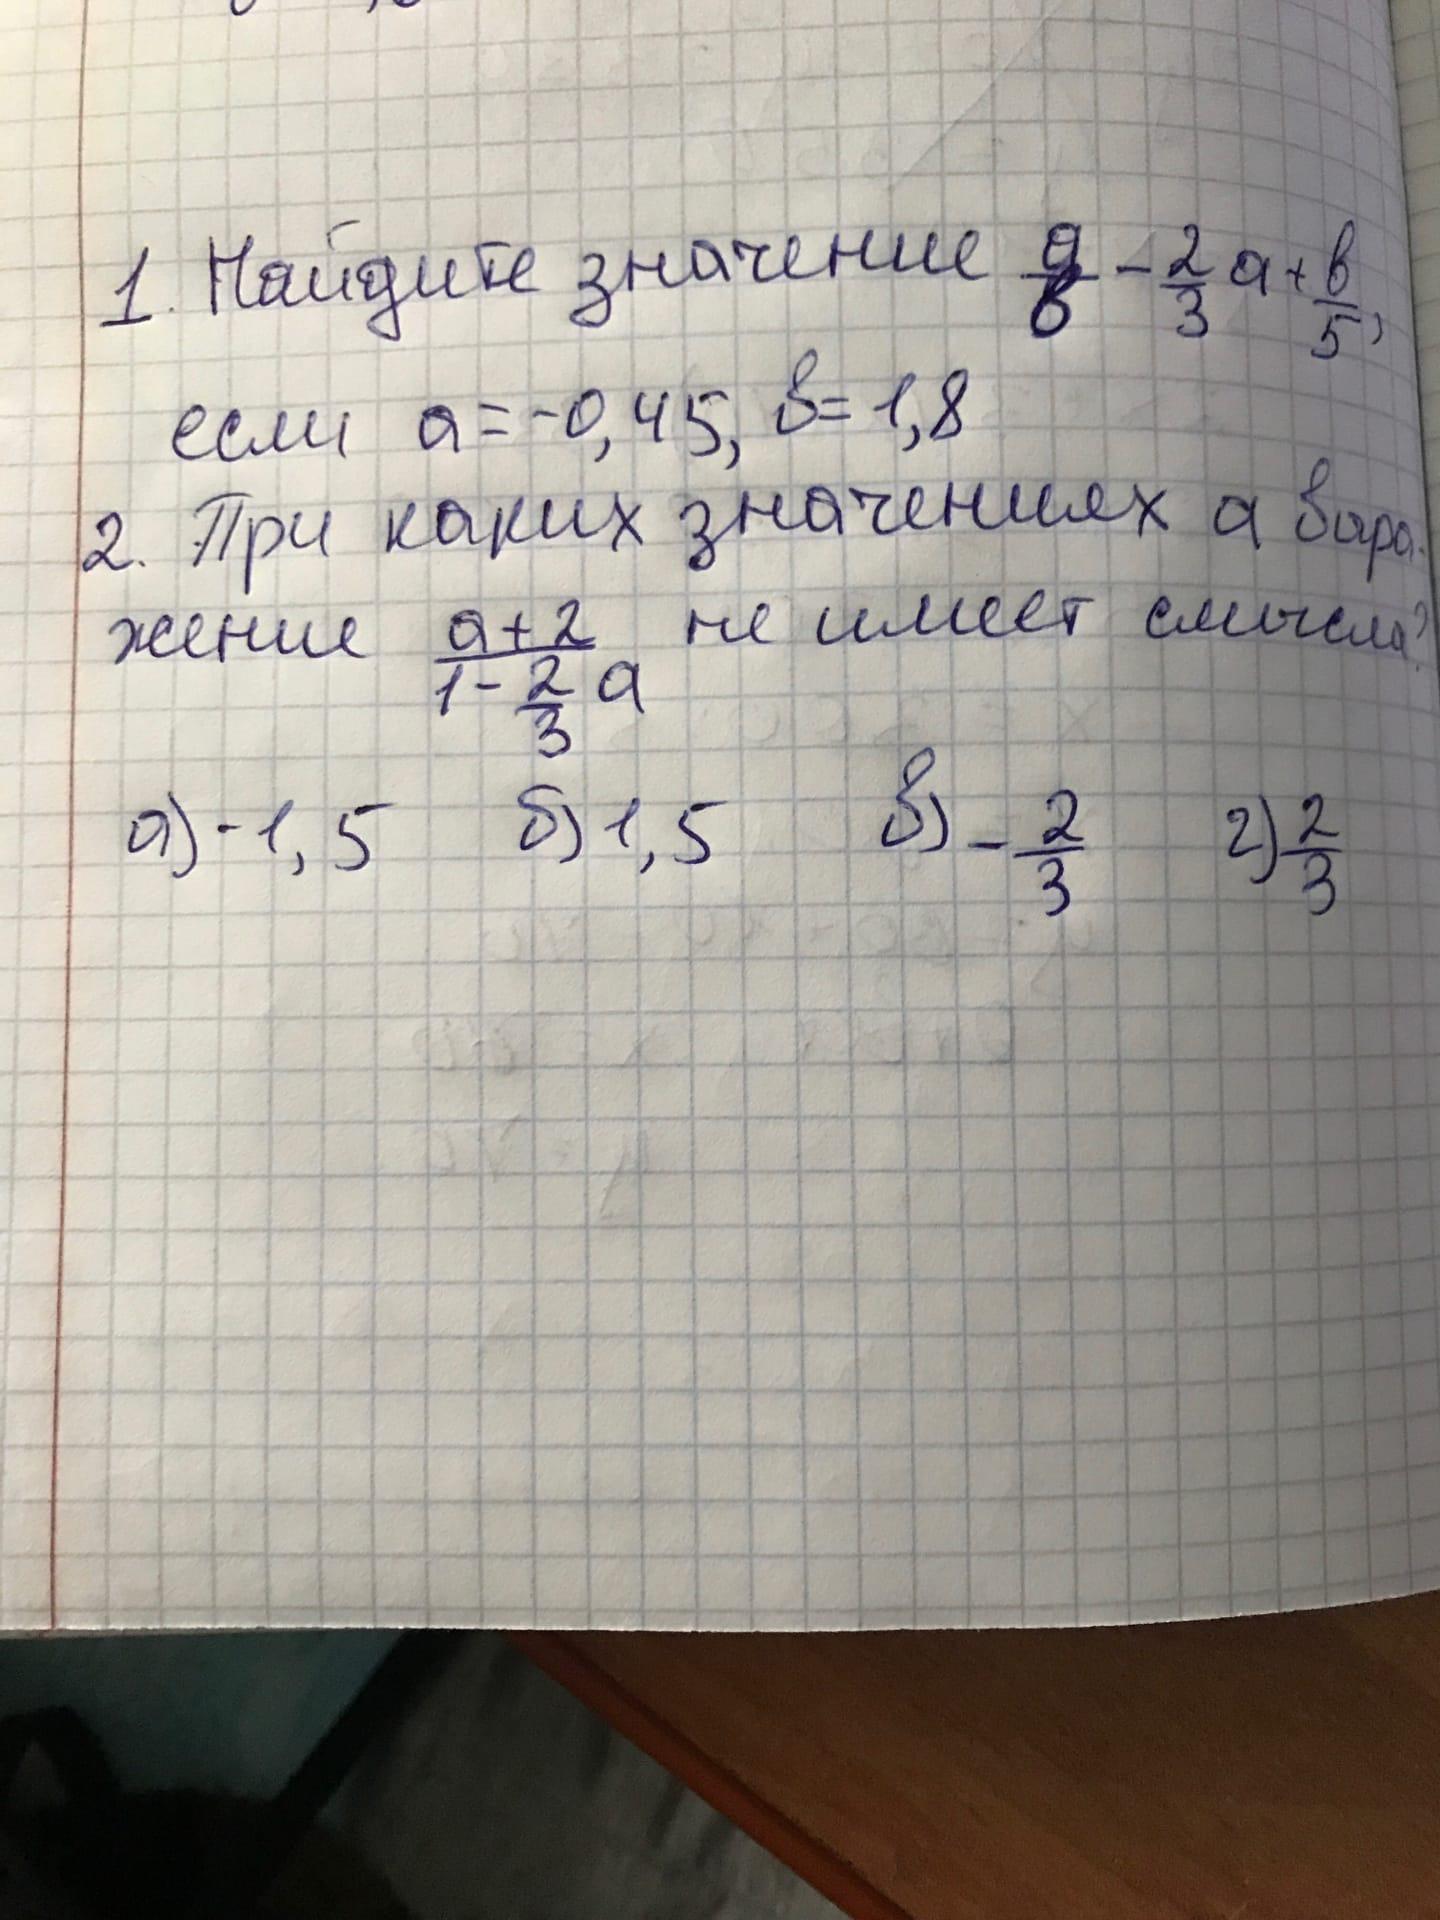 1. Найдите значение a/в - 2/3 a + в/5,
если a = -0,45, в = 1,8
2. При каких значениях a выра-
жение (a+2)/(1 - 2/3 a) не имеет смысла?
а) -1,5 б) 1,5 в) -2/3 г) 2/3